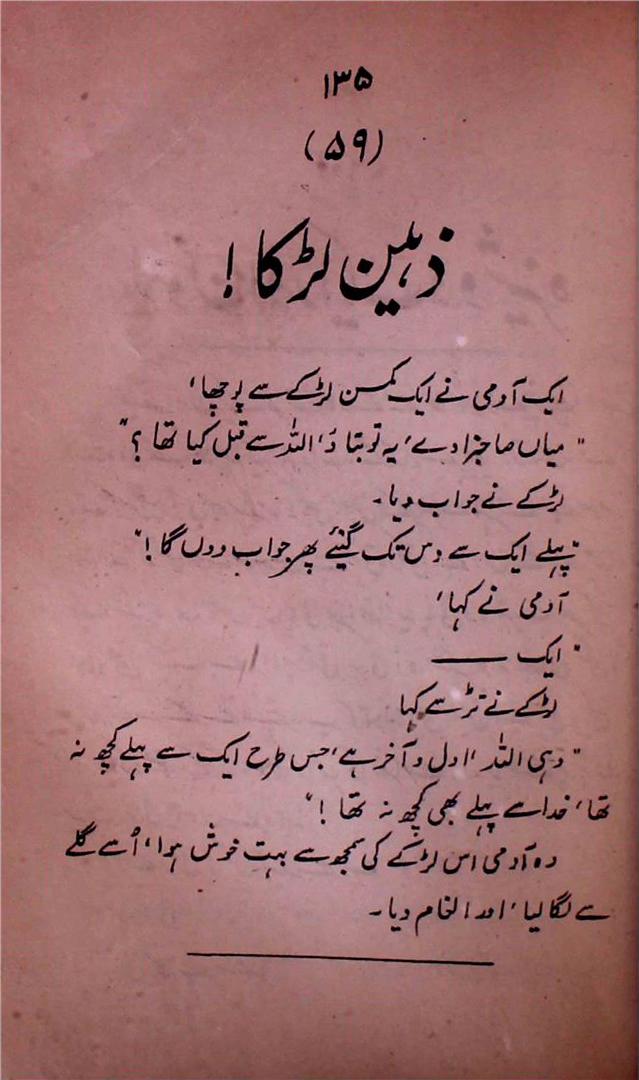 ۱۳۵
(۵۹)
ذہین لڑکا!
ایک آدمی نے ایک کمسن لڑکے سے پوچھا،
"میاں صاحبزادے، یہ تو بتاؤ، اللہ سے قبل کیا تھا؟"
لڑکے نے جواب دیا۔
"پہلے ایک سے دس تک گنیئے پھر جواب دوں گا!"
آدمی نے کہا،
"ایک ——
لڑکے نے تڑ سے کہا
"وہی اللہ، اول و آخر ہے، جس طرح ایک سے پہلے کچھ نہ
تھا، خدا سے پہلے بھی کچھ نہ تھا!"
وہ آدمی اس لڑکے کی سمجھ سے بہت خوش ہوا، اُسے گلے
سے لگا لیا، اور انعام دیا۔